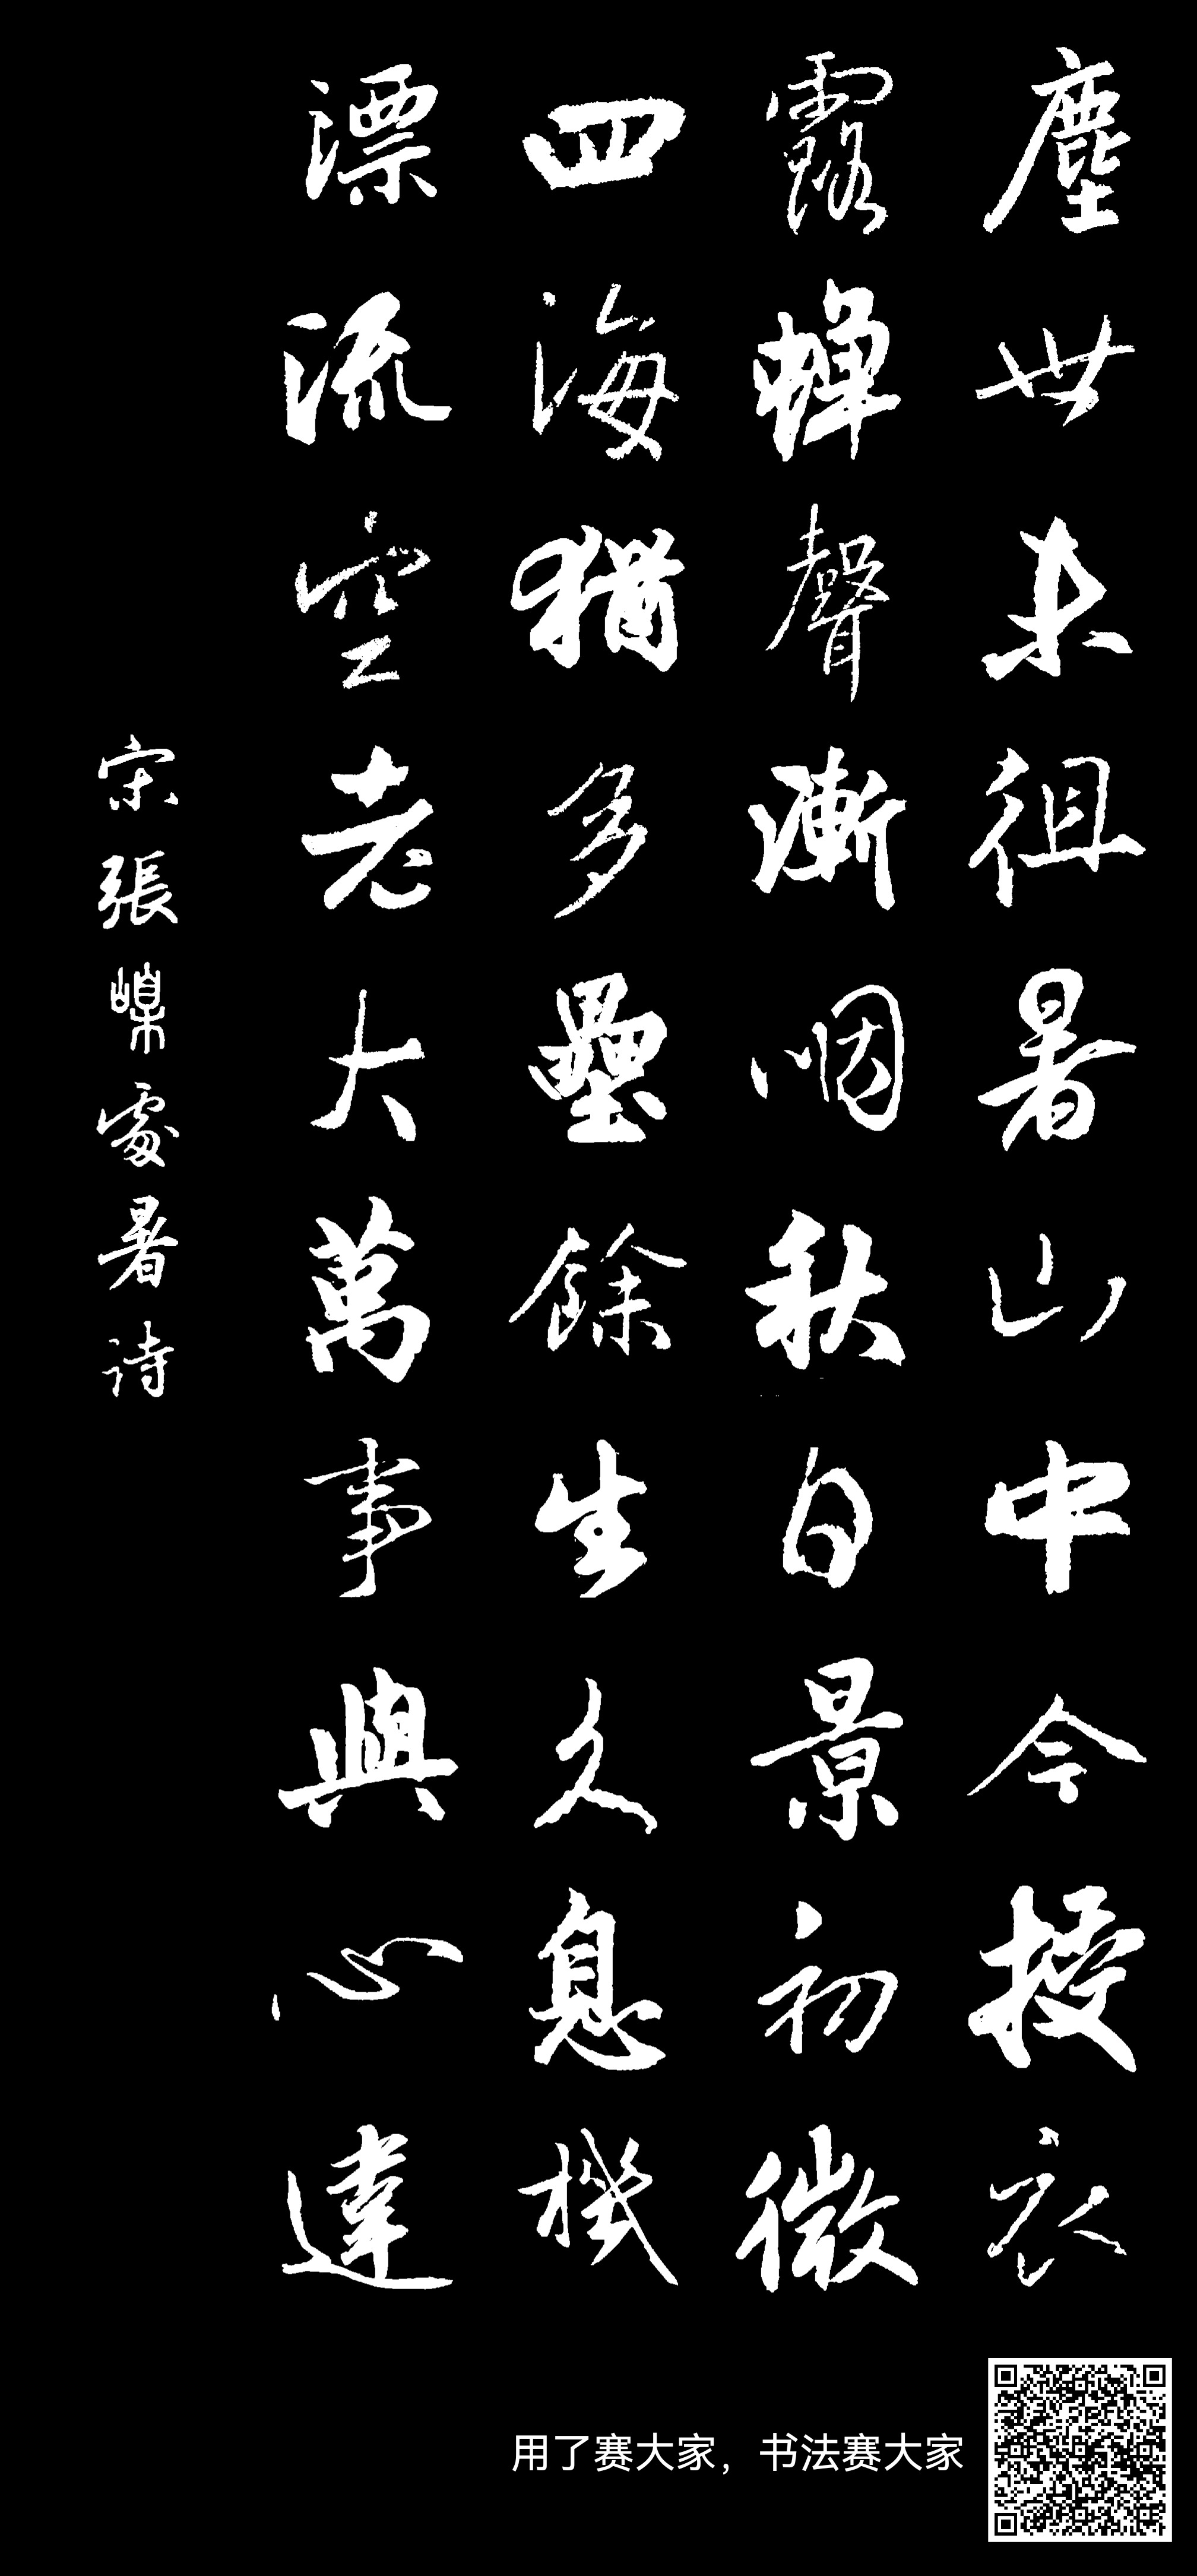 塵世未徂暑山中今授衣
露蟬聲漸咽秋日景初微
四海猶多壘餘生久息機
漂流空老大萬事與心違
宋張嵲處暑诗
用了赛大家，书法赛大家